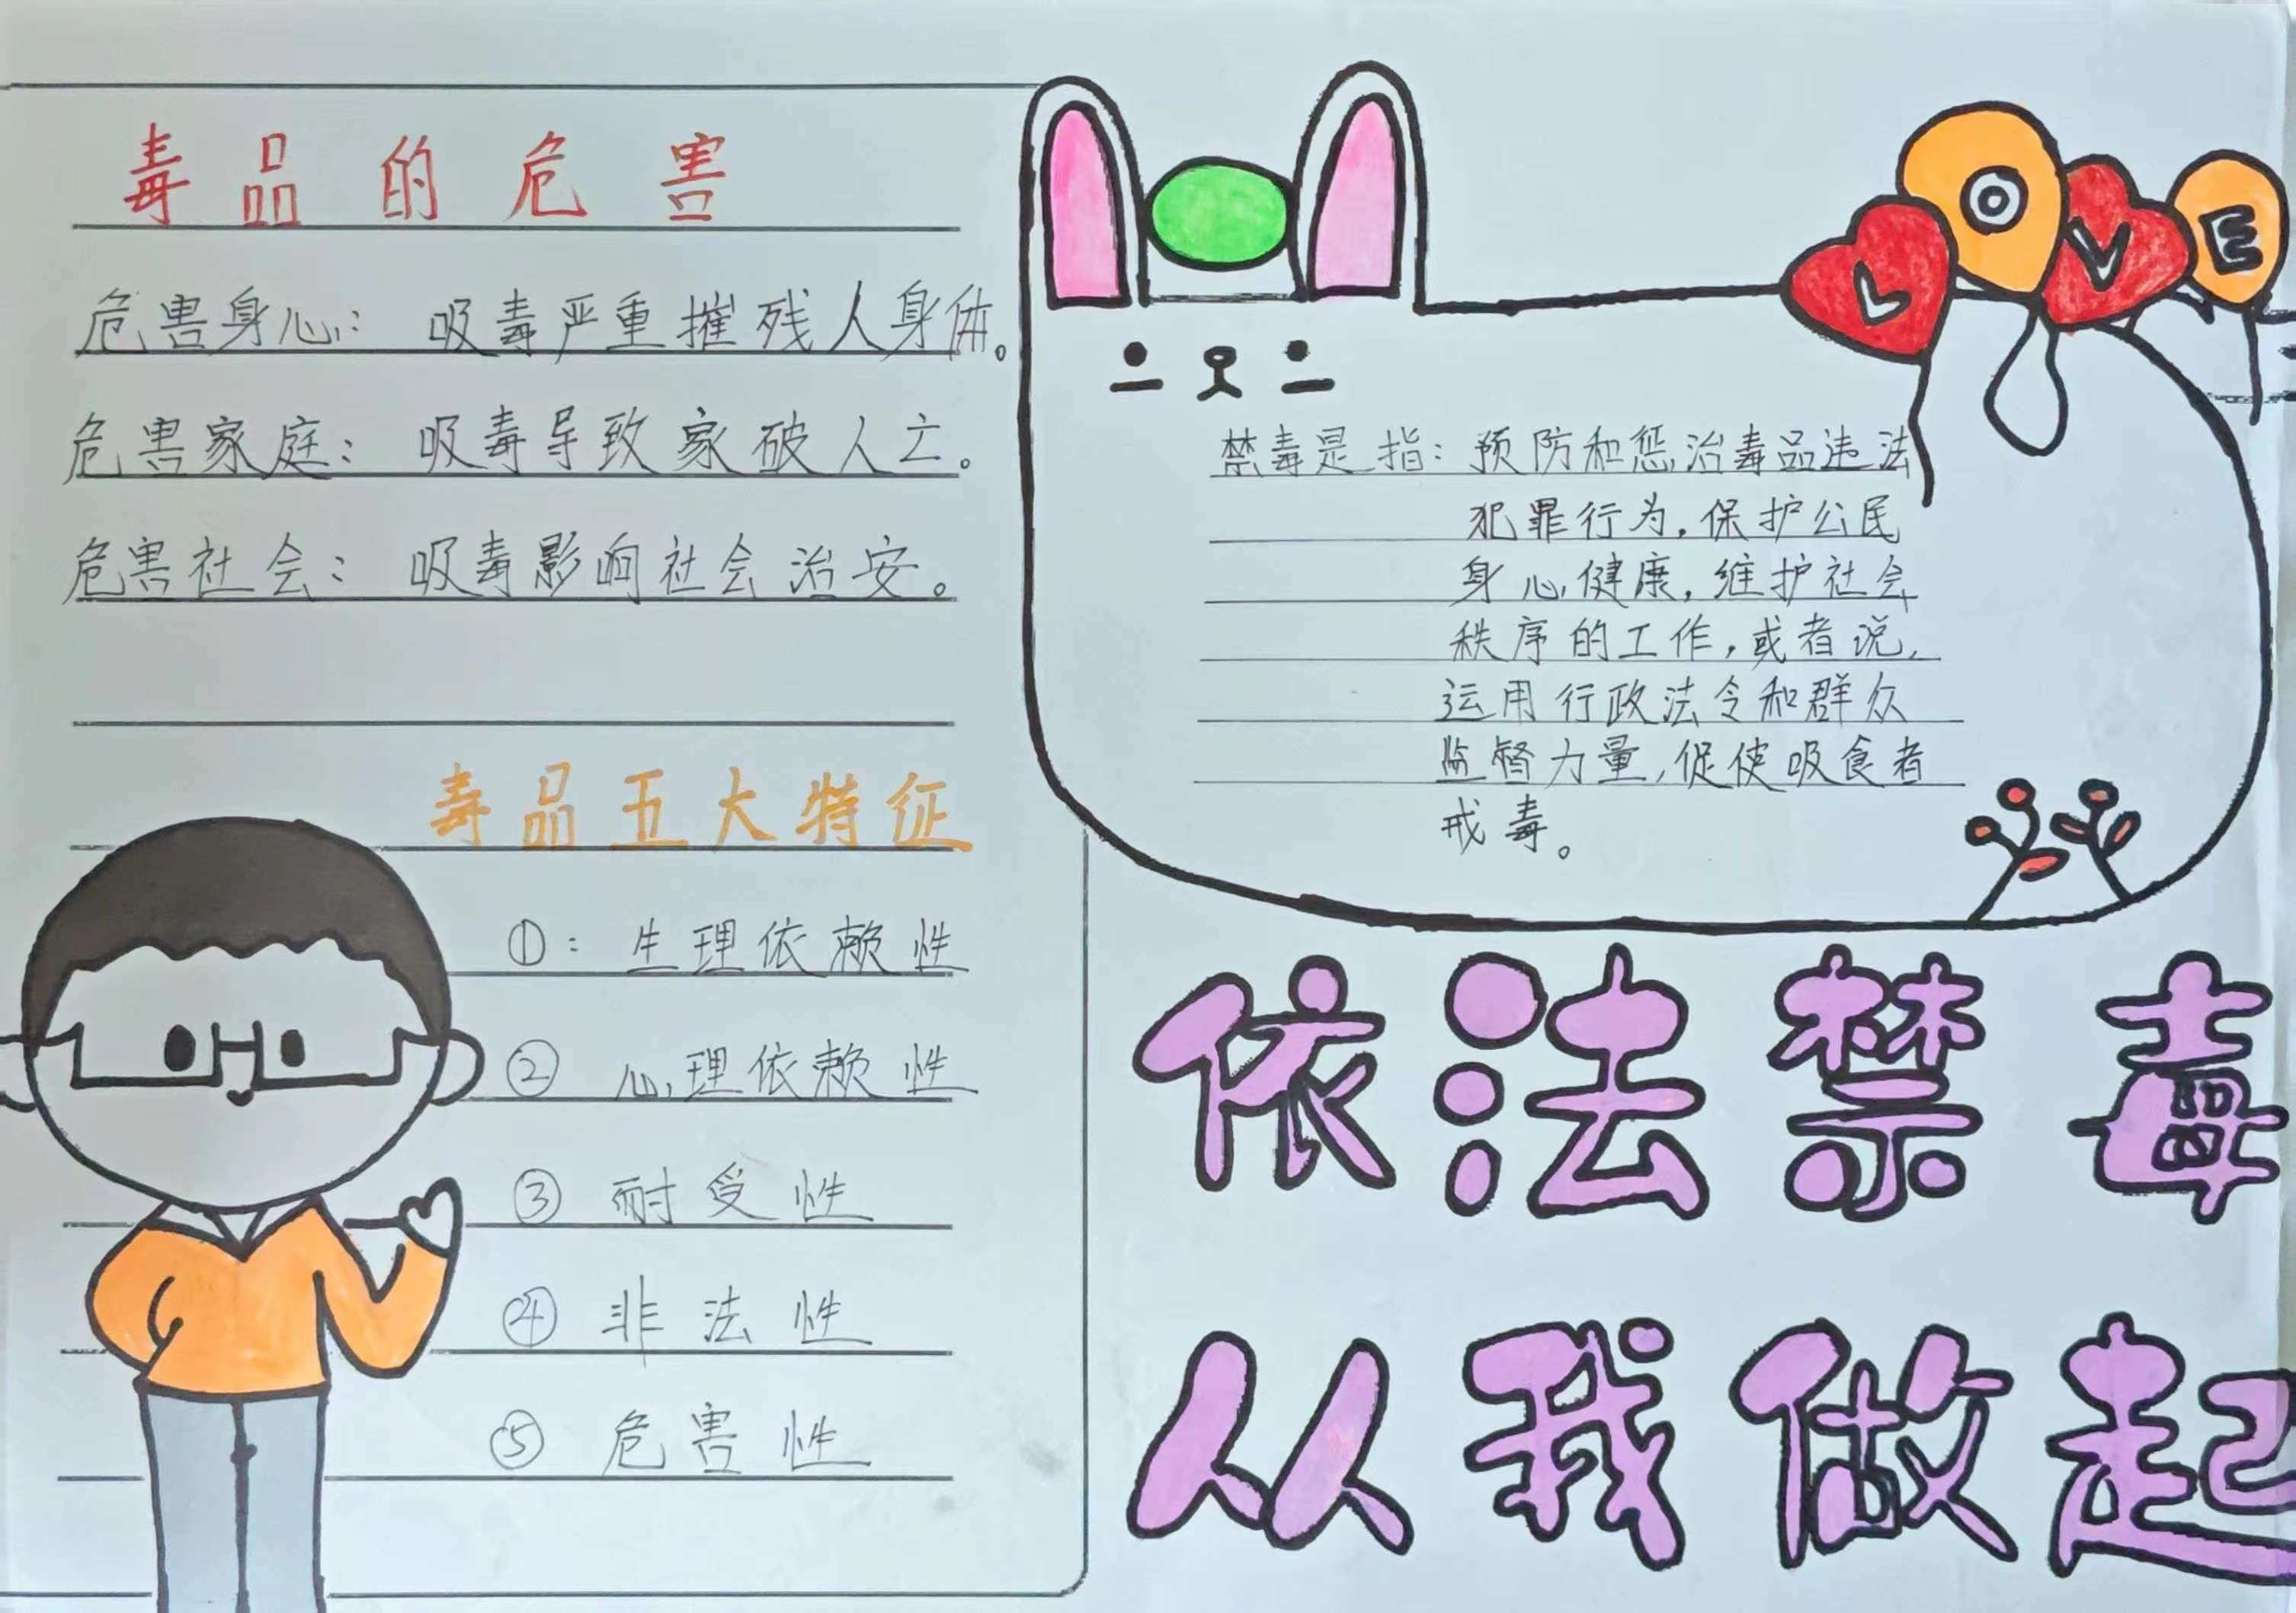 毒品的危害
危害身心：吸毒严重摧残人身体。
危害家庭：吸毒导致家破人亡。
危害社会：吸毒影响社会治安。
毒品五大特征
①：生理依赖性
② 心理依赖性
③ 耐受性
④ 非法性
⑤ 危害性
LOVE
禁毒是指：预防和惩治毒品违法
犯罪行为，保护公民
身心健康，维护社会
秩序的工作，或者说，
运用行政法令和群众
监督力量，促使吸食者
戒毒。
依法禁毒
从我做起